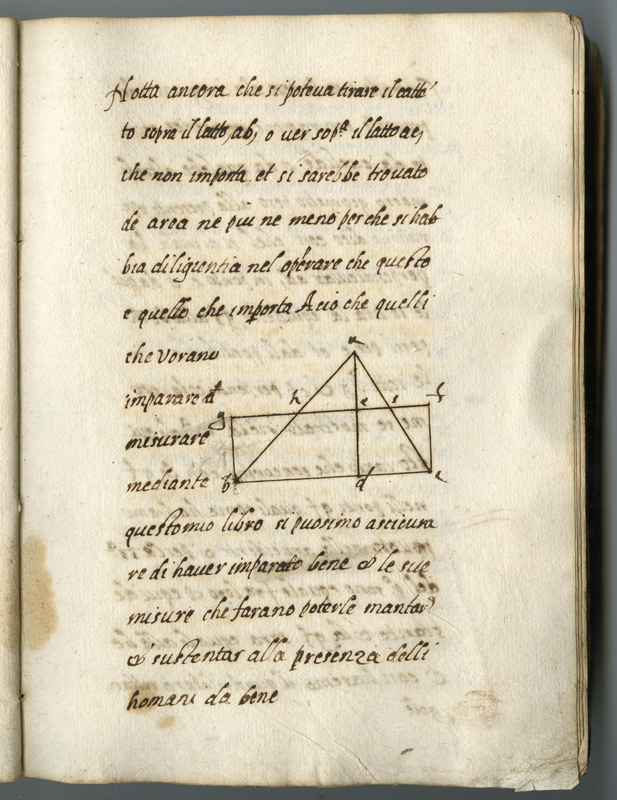 Notta ancora che si poteva tirare il catte
to sopra il latto, ab, o ver sopª il latto ac,
che non importa et si sarebbe trovato
de area ne piu ne meno per che si hab
bia diligientia nel operare che questo
e quello che importa Acio che quelli
che vorano
imparare a
misurare
mediante
questo mio libro si puosimo asicura
re di haver imparato bene & le sue
misure che farano poterle mantar
& sustentar alla presenza delli
homani da bene
a
h e i f
g
b d c